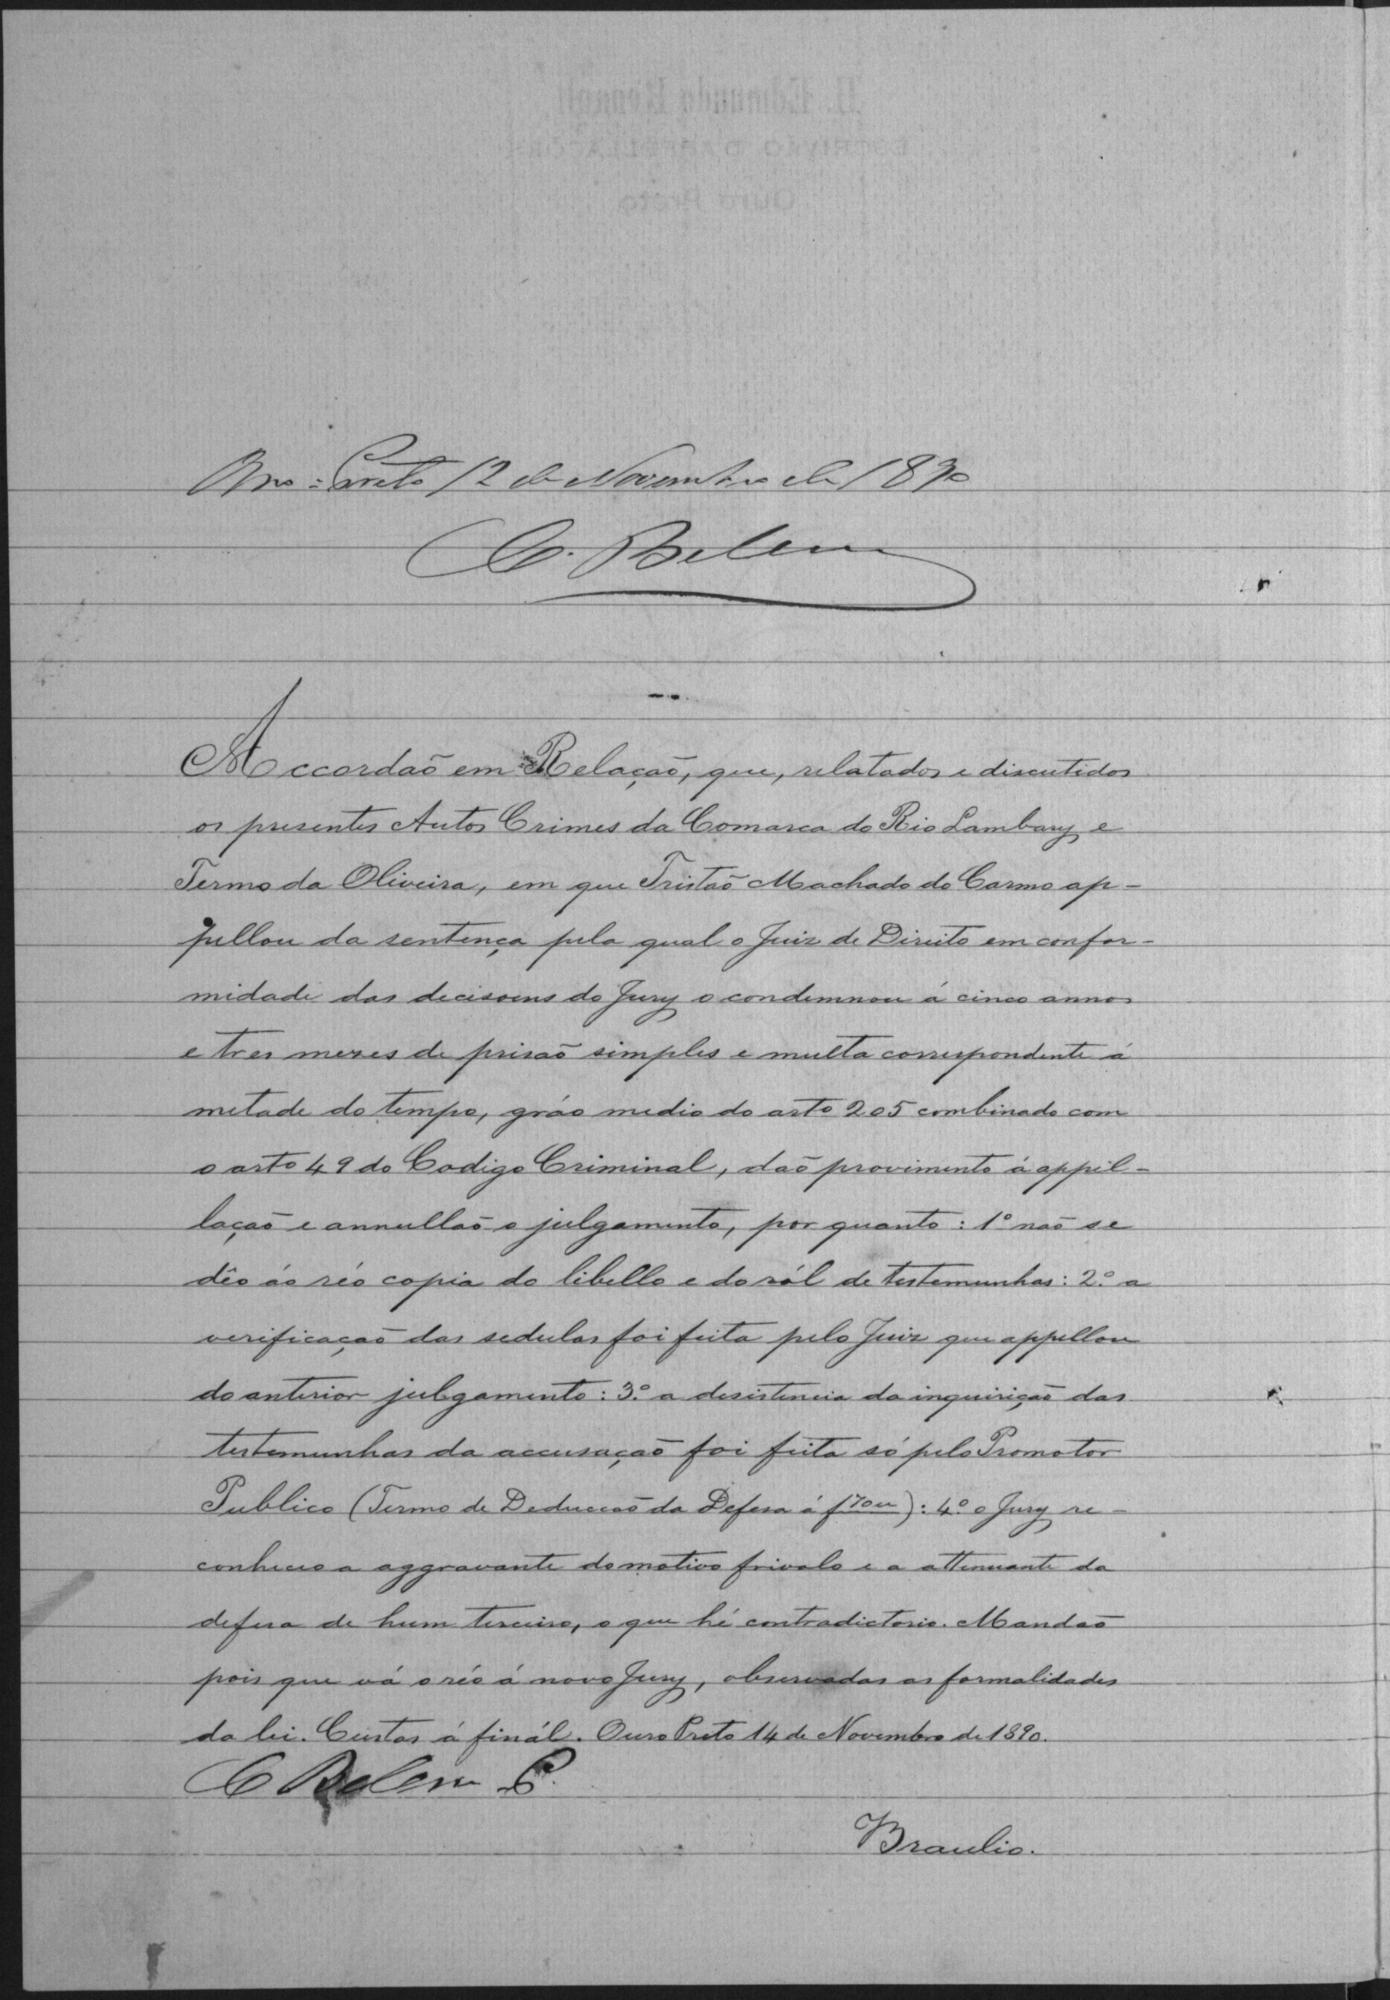 Ouro-Preto 12 de Novembro de 1890
C. Belem
Accordaõ em Relaçaõ, que, relatados e discutidos
os presentes Autos Crimes da Comarca do Rio Lambary e
Termo da Oliveira, em que Tristaõ Machado do Carmo ap-
pellou da sentença pela qual o Juiz de Direito em confor-
midade das decisoens do Jury o condemnou á cinco annos
e tres mezes de prisaõ simples e multa correspondente á
metade do tempo, gráo medio do arto 205 combinado com
o arto 49 do Codigo Criminal, daõ provimento á appel-
laçaõ e annullaõ o julgamento, por quanto: 1º naõ se
dêo áo réo copia do libello e do ról de testemunhas: 2º. a
verificaçaõ das sedulas foi feita pelo Juiz que appellou
do anterior julgamento: 3º. a desistencia da inquiriçaõ das
testemunhas da accusaçaõ foi feita só pelo Promotor
Publico (Termo de Deducçaõ da Defesa á f 70): 4º. o Jury re-
conheceo a aggravante do motivo frivolo e a attenuante da
defesa de hum terceiro, o que hé contradictorio. Mandaõ
pois que vá o réo á novo Jury, observadas as formalidades
da lei. Custas á finál. Ouro Preto 14 de Novembro de 1890.
C Belem P.
Braulio.